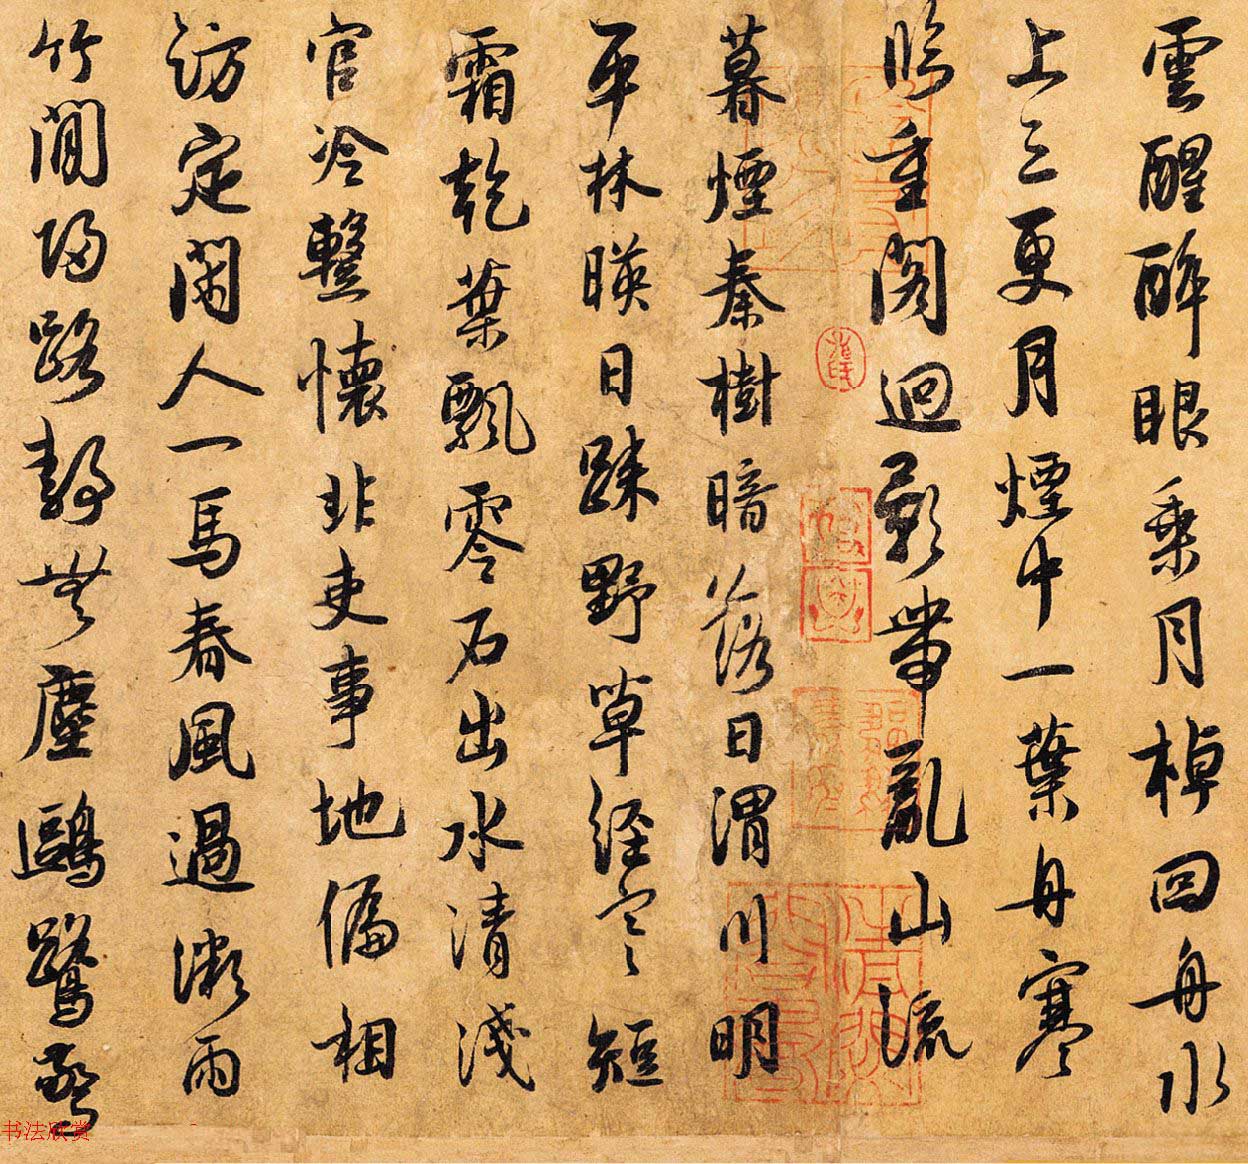 雲醒醉眼乘月棹回舟水
上三更月煙中一葉舟寒
臨重閣迥影帶亂山流
暮煙秦樹暗落日渭川明
平林暎日踈野草經寒短
霜乾葉飄零石出水清淺
官冷整懷非吏事地偏相
訪定閑人一馬春風過微雨
竹間歸路靜無塵鷗鷺驚
书法欣赏